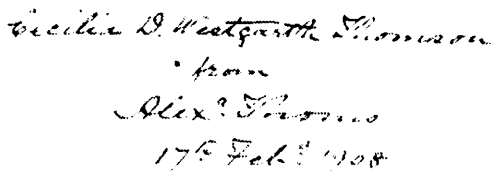 Cecilia D. Westgarth Thomson
from
Alexr. Thoms
17th Feby 1908